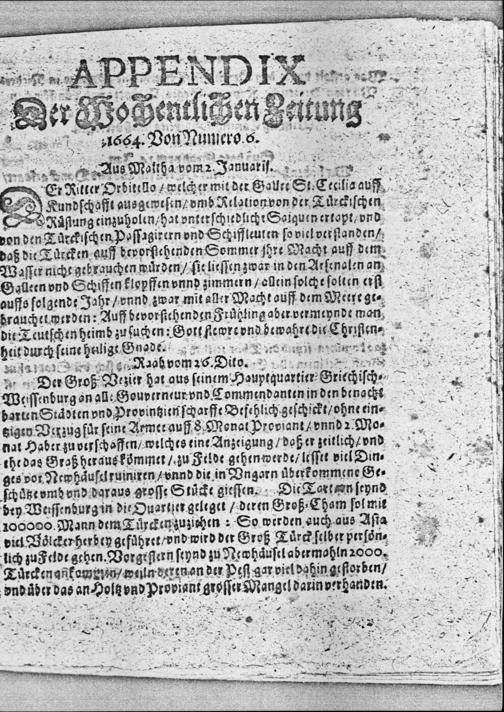 APPENDIX
Der Wochentlichen Zeitung
1664. Von Numero 6.
Aus Maltha vom 2. Januarij.
DEr Ritter Orbitello / welcher mit der Gallee St. Cecilia auff
Kundschafft ausgewesen / vmb Relation von der Türckischen
Rüstung einzuholen / hat unterschiedliche Saiquen ertapt / vnd
von den Türckischen Passagirern vnd Schiffleuten so viel verstanden /
daß die Türcken auff bevorstehenden Sommer jhre Macht auff dem
Wasser nicht gebrauchen würden / sie liessen zwar in den Arsenalen an
Galleen vnd Schiffen klopffen vnnd zimmern / allein solche solten erst
auffs folgende Jahr / vnnd zwar mit aller Macht auff dem Meere ge-
brauchet werden: Auff bevorstehenden Frühling aber vermeynde man
die Teutschen heimb zu suchen: Gott stewre vnd bewahre die Christen-
heit durch seine heilige Gnade.
Raab vom 26. Dito.
Der Groß Vezier hat aus seinem Hauptquartier Griechisch-
Weissenburg an alle Gouverneur vnd Commendanten in den benach-
barten Städten vnd Provintzien scharffe Befehlich geschickt / ohne ein-
tzigen Verzug für seine Armee auff 8. Monat Proviant / vnnd 2. Mo-
nat Haber zu verschaffen / welches eine Anzeigung / daß er zeitlich / vnd
ehe das Graß heraus kömmet / zu Felde gehen werde / lesset viel Din-
ges vor Newhäusel ruiniren / vnnd die in Vngarn überkommene Ge-
schütze vmb vnd daraus grosse Stücke giessen. Die Tartarn seynd
bey Weissenburg in die Quartier geleget / deren Groß-Cham sol mit
100000. Mann dem Türcken zuziehen: So werden auch aus Asia
viel Völcker herbey geführet / vnd wird der Groß Türck selber persön-
lich zu Felde gehen. Vorgestern seynd zu Newhäusel abermahln 2000.
Türcken ankommen / weiln deren an der Pest gar viel dahin gestorben /
vnd über das an Holtz vnd Proviant grosser Mangel darin verhanden.